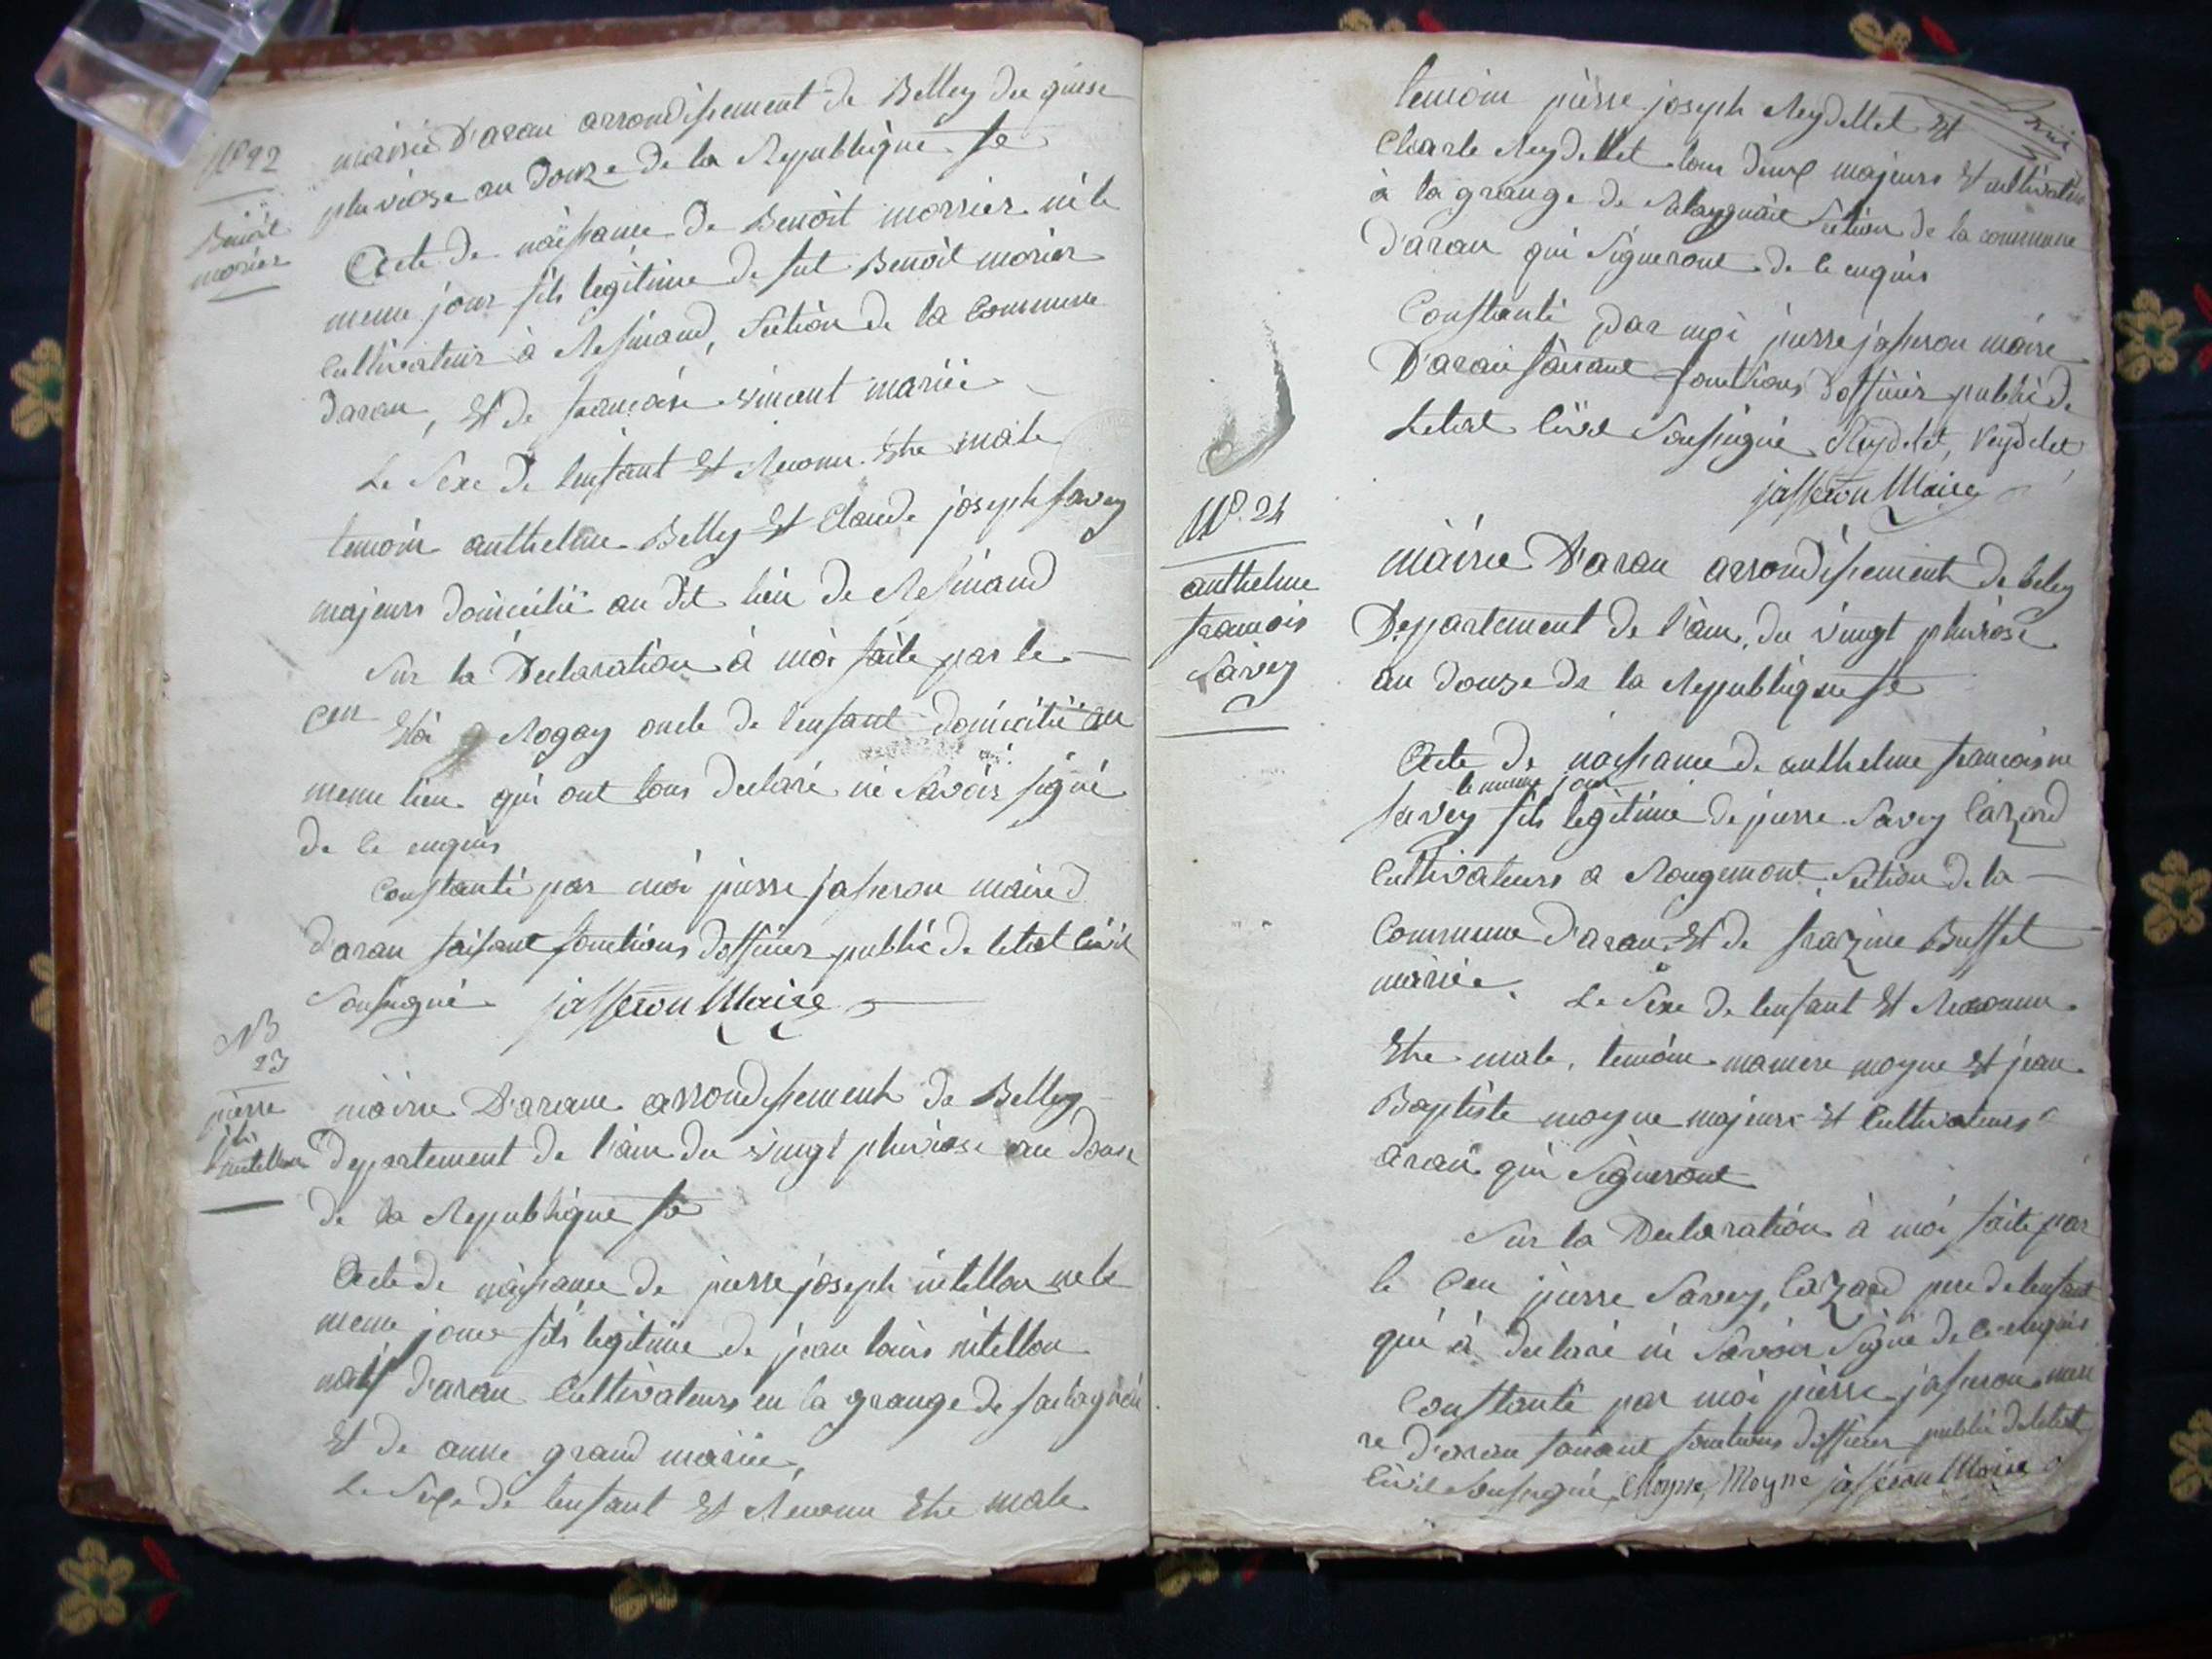 No 22
Benoit
morier
mairie D'aran arrondissement de Belley du quinse
pluviose an Douze de la Republique fe
Acte de naissance de Benoit morier né le
meme jour fils legitime de fut Benoit morier
Cultivateur à Resinand, Section de la Commune
daran, Et de francoise vincent mariée
Le Sexe de lenfant Et Reconu Etre male
temoin anthelme Belley Et Claude joseph Savey
majeurs domicilié au dit lieu de Resinand
Sur la Declaration à moi faite par le
Cen Rogay oncle de lenfant domicilié au
meme lieu qui ont tous declaré ne Savoir signé
de ce enquis
Constanté par moi pierre jasseron maire d
d'aran faisant fonctions dofficier public de letat Civil
Sousigné jasseron Maire
No
23
pierre
jh
nitellon
mairie D'arane arrondissement de Belley
departement de l'ain du vingt pluviose an Douse
de la Republique fe
Acte de naissance de pierre joseph nitellon né le
meme jour fils legitime de jean louis nitellon
natif d'aran Cultivateurs en la grange de
Et de anne grand mariée,
Le Sexe de lenfant Et Reconu Etre male
temoin pierre joseph Reydellet Et
Charle Reydellet tous deux majeurs Et cultivateurs
à la grange de Section de la commune
D'aran qui Signeront de ce enquis
Constanté par moi pierre jasseron maire
D'aran faisant fonctions dofficier public de
Letat Civil Sousigné Reydelet, Reydelet
jasseron Maire
No. 24
anthelme
francois
Savey
mairie D'aran arrondissement de beley
Departement de l'ain, du vingt pluviose
an douse de la Republique fe
Acte de naissance de anthelme francois né
le meme jour
Savey fils legitime de pierre Savey Cazard
Cultivateurs a Rougemont Section de la
Commune d'aran, Et de frazine Buffet
mariée. Le Sexe de lenfant Et Reconnu
Etre male, temoin mamere moyne Et jean
Baptiste moyne majeurs Et Cultivateurs a
aran qui Signeront
Sur la Declaration à moi faite par
le Cen pierre Savey, Cazard pere de lenfant
qui à declaré ne Savoir Signé de ce enquis
Constanté par moi pierre jasseron mai
re D'aran faisant fonctions dofficier public de letat
Civil Sousigné, Moyne, Moyne jasseron Maire